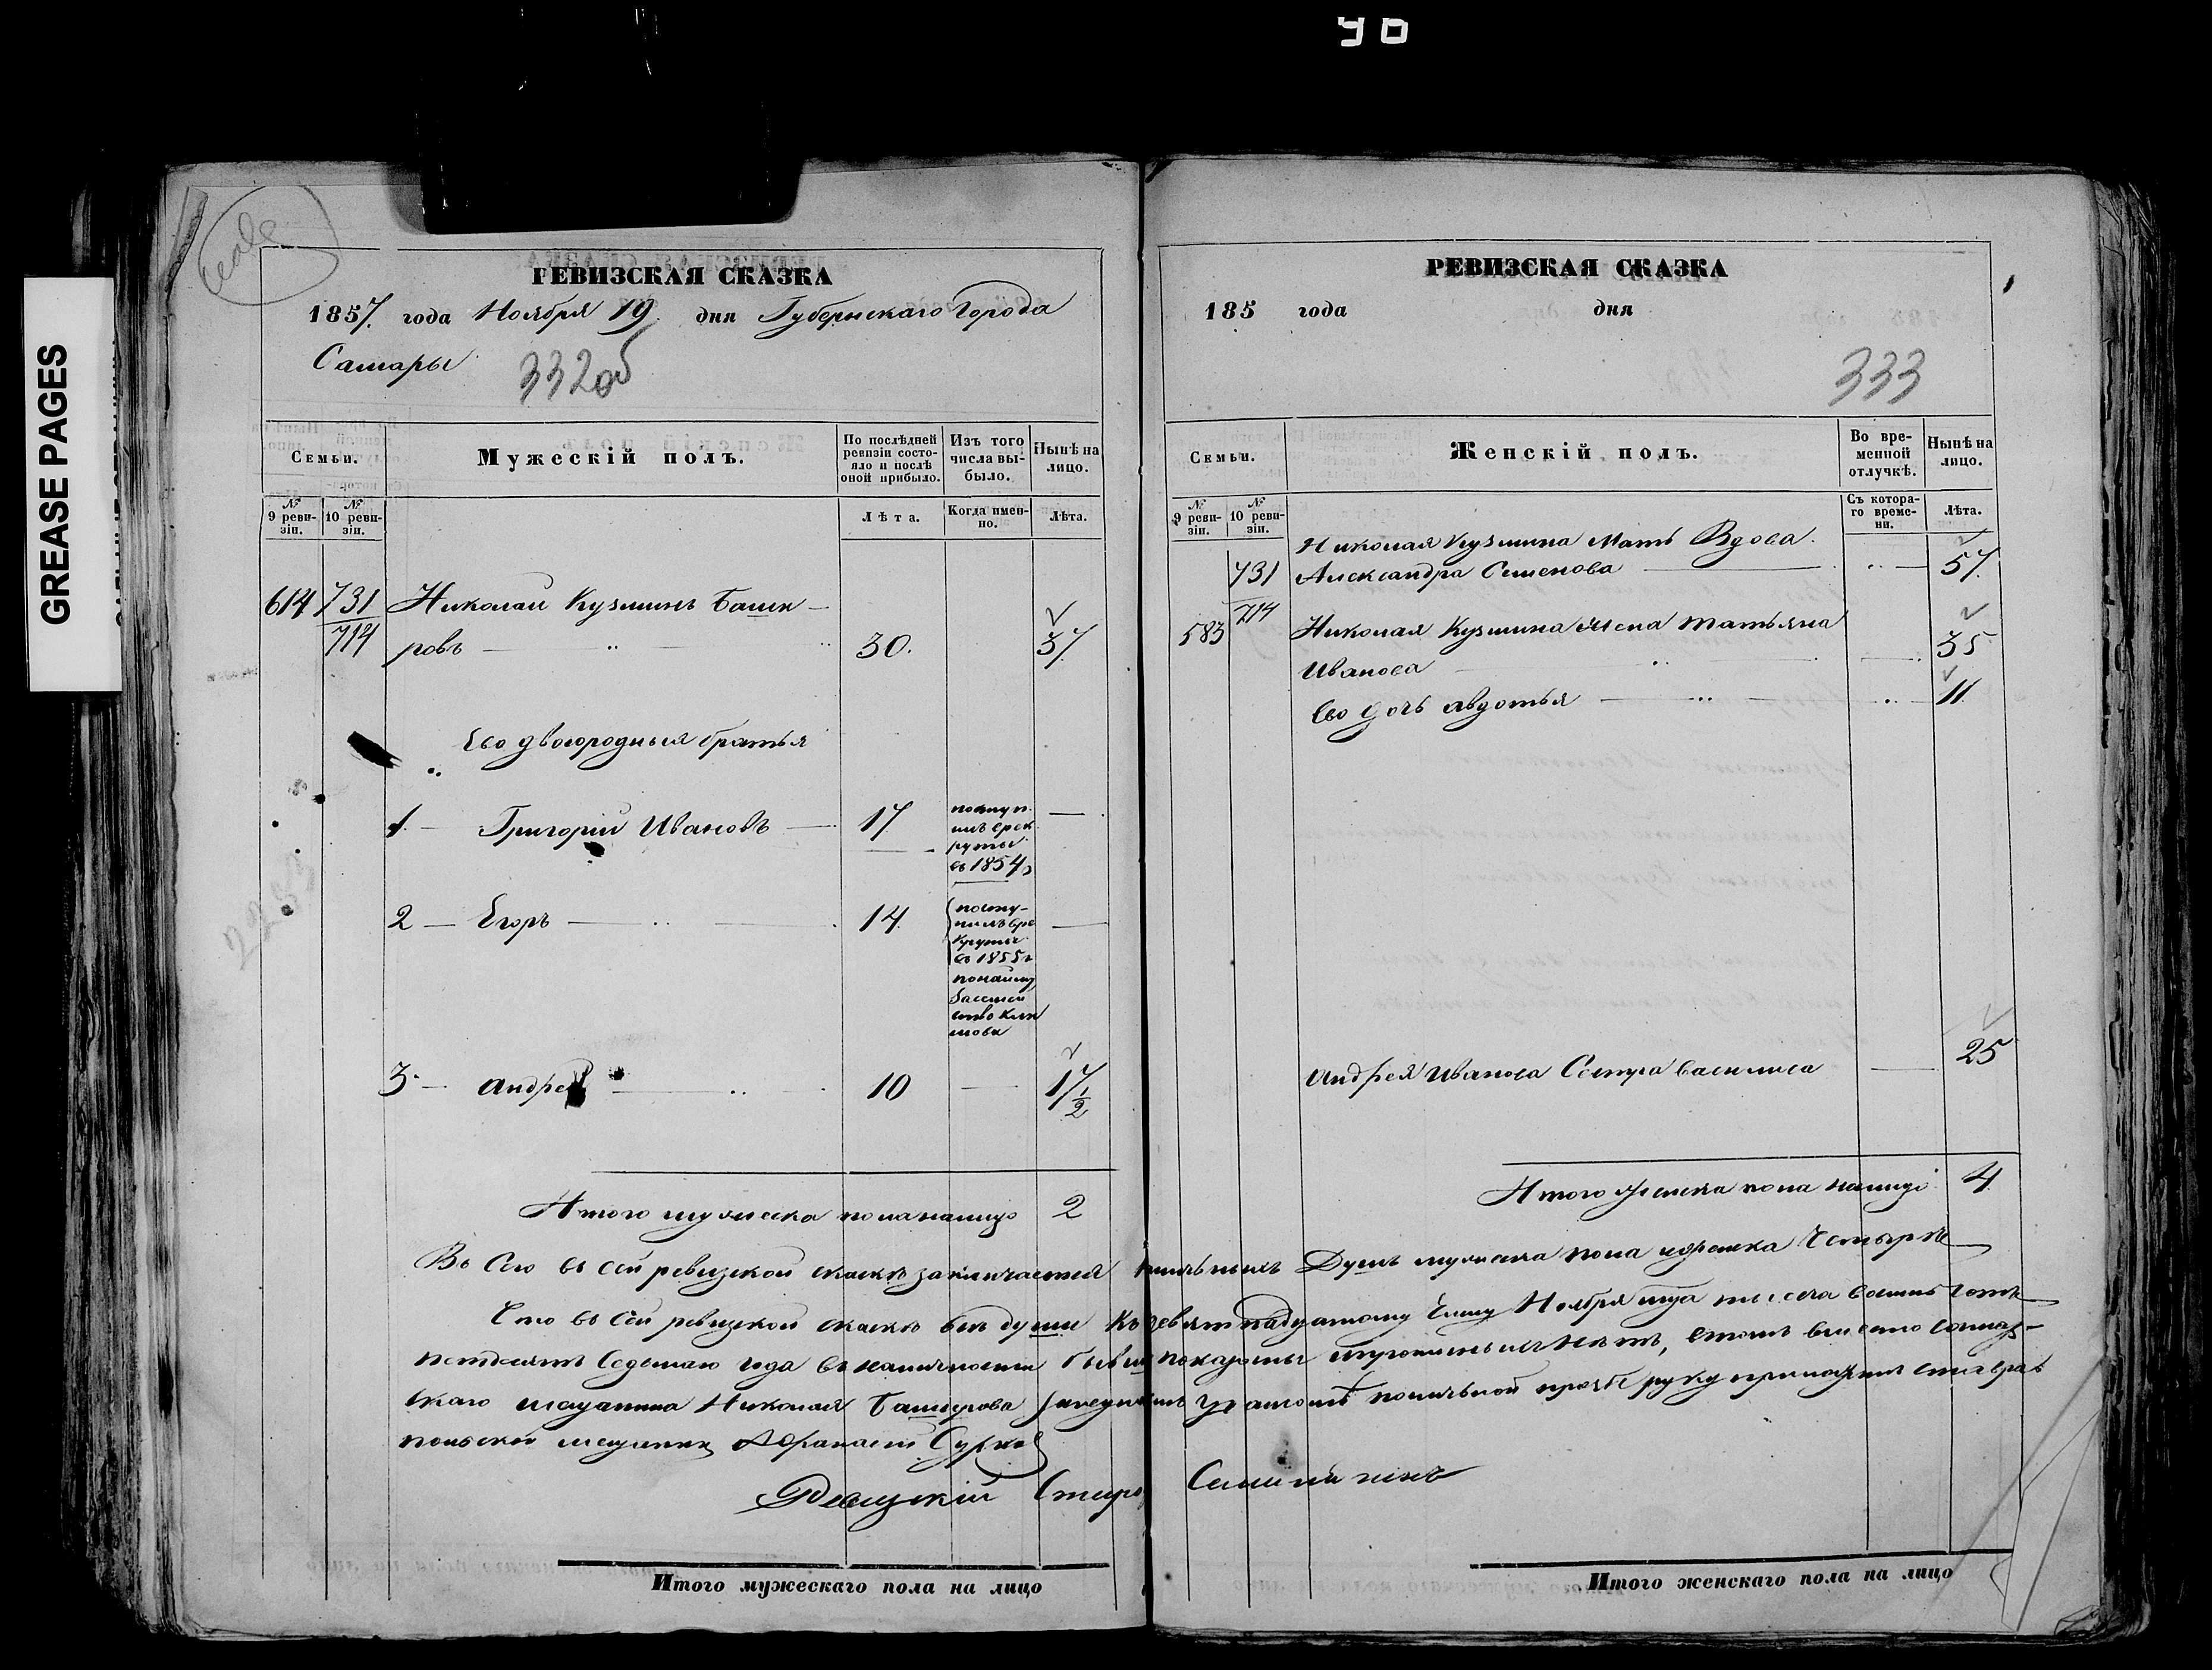 96
GREASE PAGES
РЕВИЗСКАЯ СКАЗКА
1857. года Ноября 19. дня Губернскаго Города
Самары
332об
Семьи.
Мужескій полъ.
По послѣдней ревизіи состояло и послѣ оной прибыло.
Изъ того числа выбыло.
Нынѣ на лицо.
№ 9 ревизіи.
№ 10 ревизіи.
Лѣта.
Когда именно.
Лѣта.
614 731 Николай Кузминъ Баши-
714 ровъ 30. 37
Его двоюродныя братья
1. Григорій Ивановъ 17 поступилъ врекруты въ 1854г
2 Егоръ 14. поступилъ врекруты въ 1855г
3 Андрей 10 17 1/2
Итого мужеска пола налицо 2
РЕВИЗСКАЯ СКАЗКА
185 года дня
333
Семьи.
Женскій полъ.
Во временной отлучкѣ.
Нынѣ на лицо.
№ 9 ревизіи.
№ 10 ревизіи.
Съ котораго времени.
Лѣта.
Николая Кузмина Мать Вдова
731 Александра Семенова 57.
583 714 Николая Кузмина жена татьяна
Иванова 35
Его дочь авдотья 11
Андрея Иванова Сестра василиса 25
Итого женска пола налицо 4
Въ Сего въ сей ревизской сказкѣ заключается Душъ мужеска пола женска Четыре
Что въ Сей ревизской сказкѣ всѣ души къ девятнадцатому Ноября тысеча восимъ сотъ
петдесятъ Седьмаго года въ наличности показаны ипропищеныхъ нѣтъ, втомъ вместо самар-
скаго мещанина Николая Башкирова грамотѣ поличной прозбе руку приложилъ ставра
польской мещанинъ Афанасий Сурков
Итого мужескаго пола на лицо
Итого женскаго пола на лицо